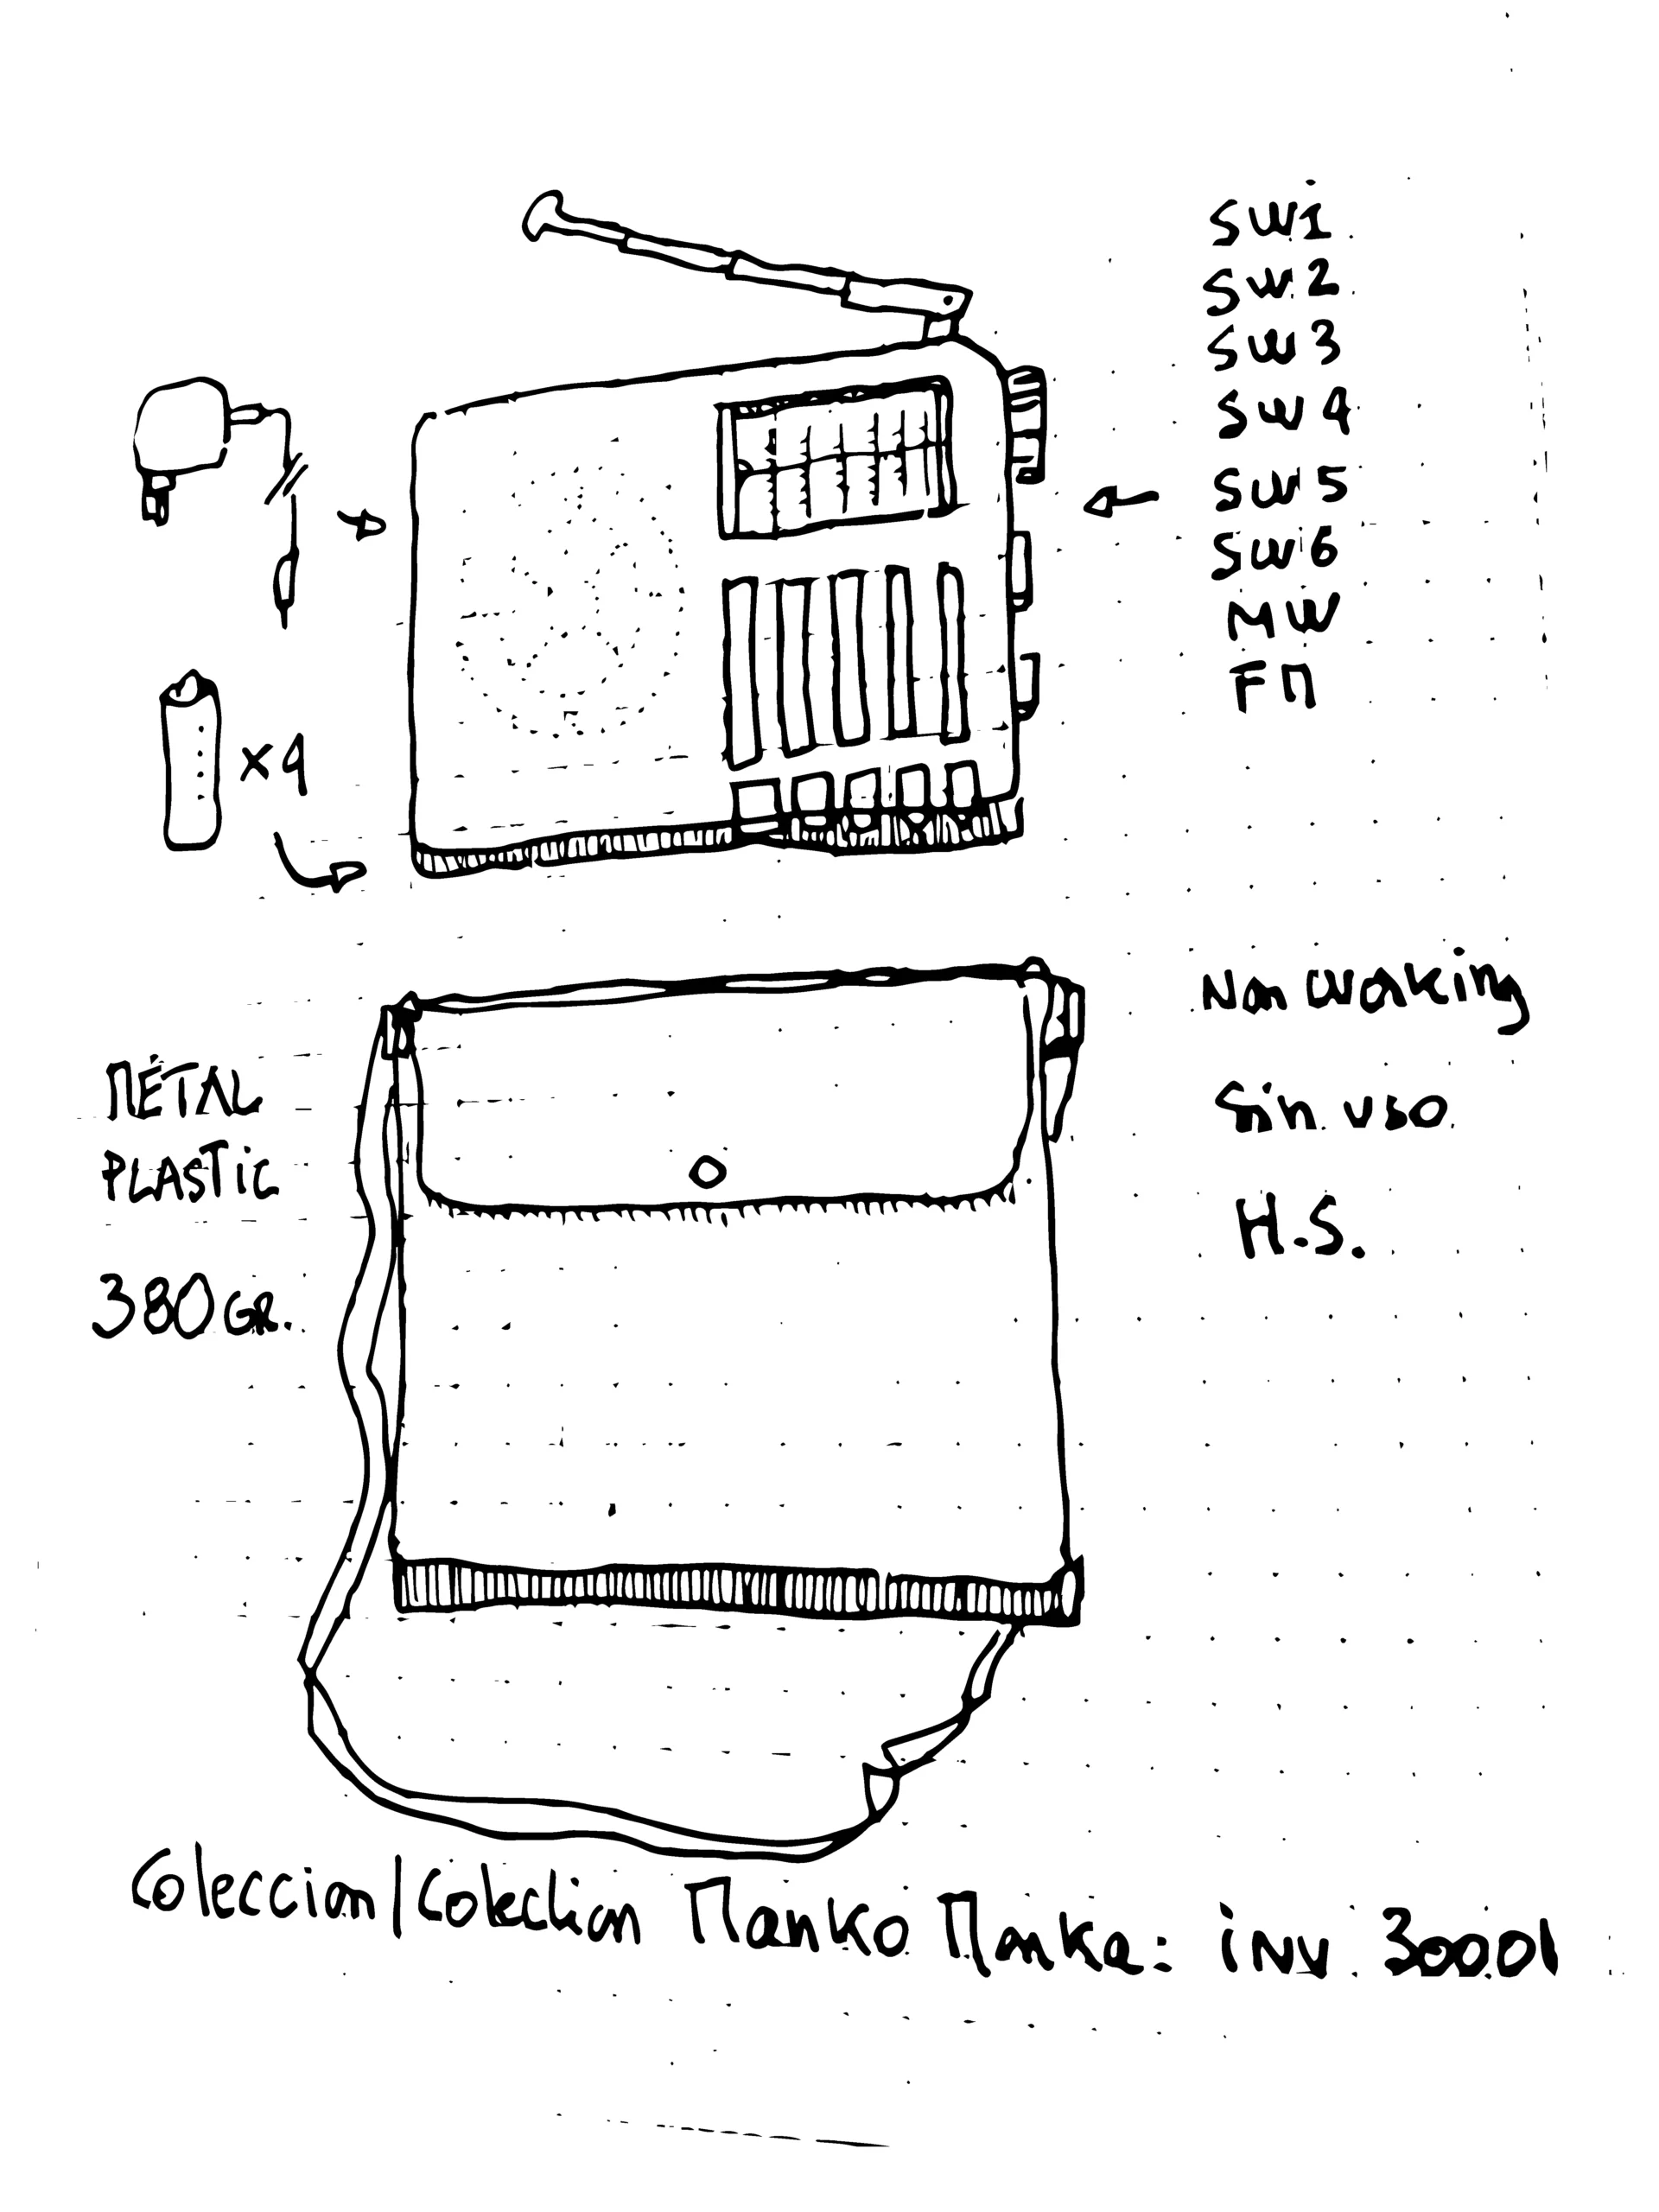 SW1.
SW2.
SW3
SW4
SW5
SW6
MW
FM
x4
Non working
Sin uso
H.S.
MÉTAL
PLASTIC
380 GR.
Coleccion/Colection Manko Manke: inv. 300.01